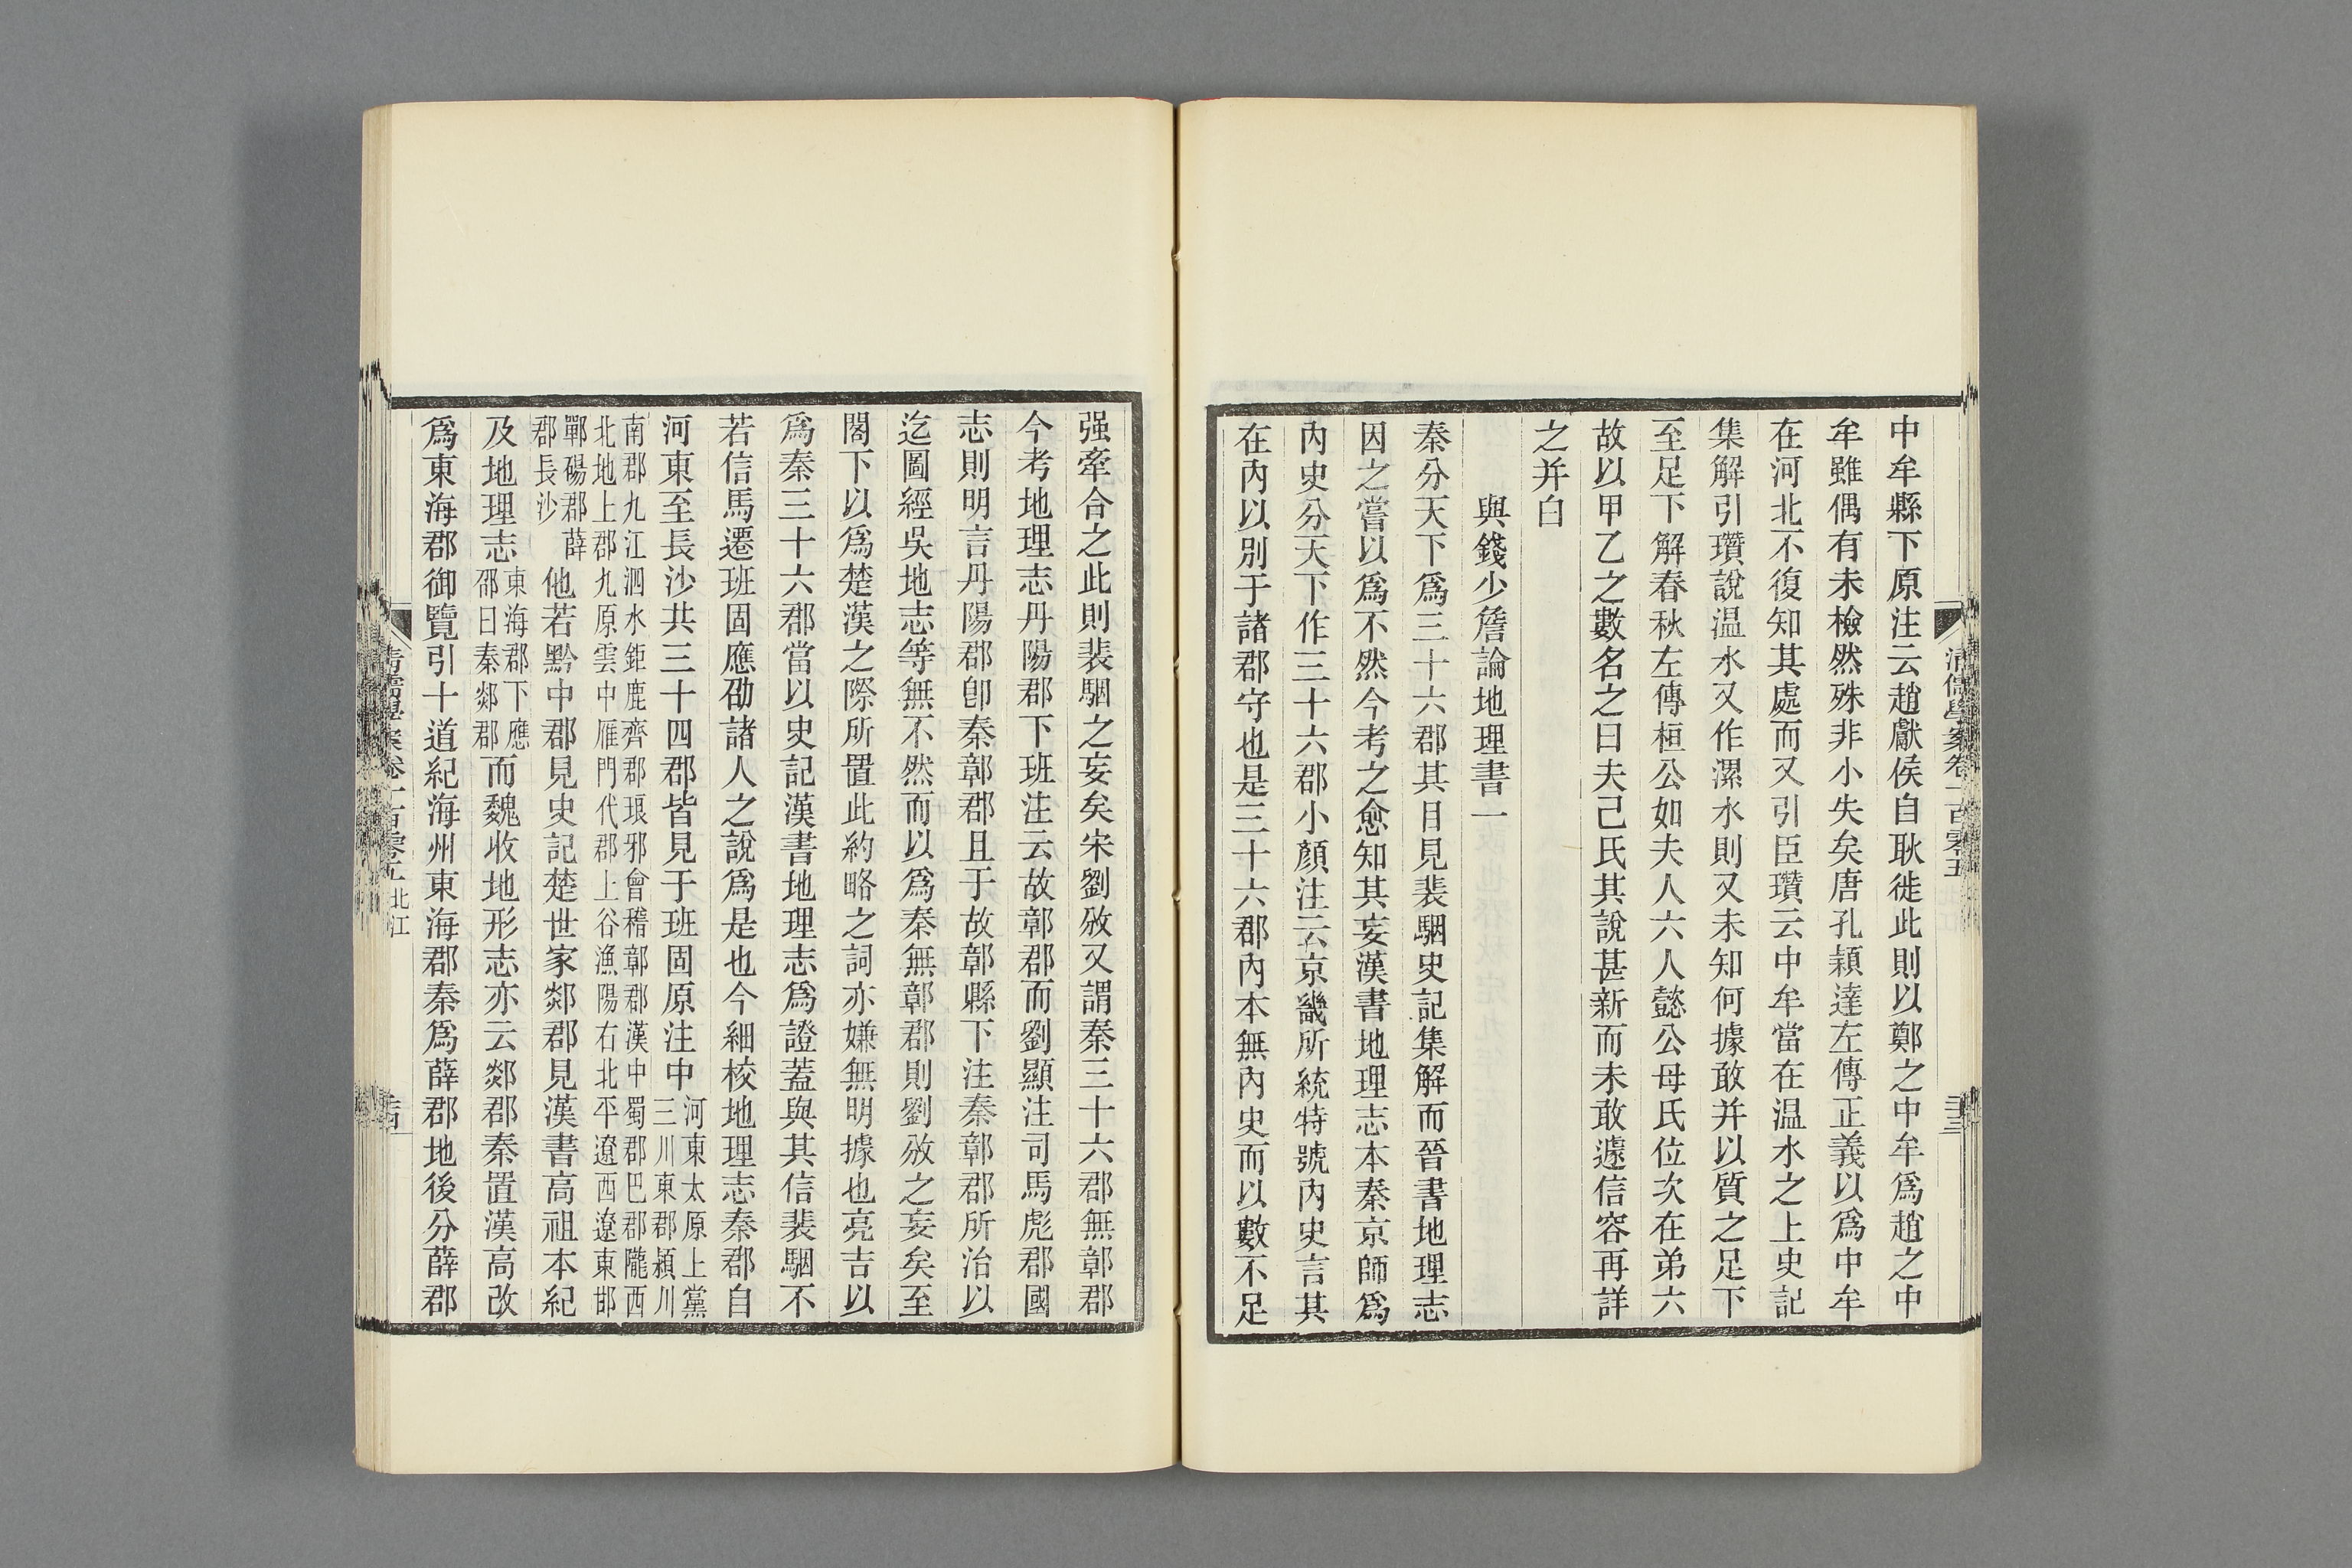 中牟縣下原注云趙獻侯自耿徙此則以鄭之中牟爲趙之中
牟雖偶有未檢然殊非小失矣唐孔穎達左傳正義以爲中牟
在河北不復知其處而又引臣瓚云中牟當在温水之上史記
集解引瓚說温水又作漯水則又未知何據敢并以質之足下
至足下解春秋左傳桓公如夫人六人懿公母氏位次在弟六
故以甲乙之數名之曰夫己氏其說甚新而未敢遽信容再詳
之并白
與錢少詹論地理書一
秦分天下爲三十六郡其目見裴駰史記集解而晉書地理志
因之嘗以爲不然今考之愈知其妄漢書地理志本秦京師爲
內史分天下作三十六郡小顏注云京畿所統特號內史言其
在內以別于諸郡守也是三十六郡內本無內史而以數不足
强牽合之此則裴駰之妄矣宋劉攽又謂秦三十六郡無鄣郡
今考地理志丹陽郡下班注云故鄣郡而劉顯注司馬彪郡國
志則明言丹陽郡卽秦鄣郡且于故鄣縣下注秦鄣郡所治以
迄圖經吳地志等無不然而以爲秦無鄣郡則劉攽之妄矣至
閣下以爲楚漢之際所置此約略之詞亦嫌無明據也亮吉以
爲秦三十六郡當以史記漢書地理志爲證蓋與其信裴駰不
若信馬遷班固應劭諸人之說爲是也今細校地理志秦郡自
河東至長沙共三十四郡皆見于班固原注中河東太原上黨
三川東郡潁川
南郡九江泗水鉅鹿齊郡琅邪會稽鄣郡漢中蜀郡巴郡隴西
北地上郡九原雲中雁門代郡上谷漁陽右北平遼西遼東邯
鄲碭郡薛
郡長沙
他若黔中郡見史記楚世家郯郡見漢書高祖本紀
及地理志東海郡下應
邵曰秦郯郡而魏收地形志亦云郯郡秦置漢高改
爲東海郡御覽引十道紀海州東海郡秦爲薛郡地後分薛郡
清儒學案卷一百零五
北江